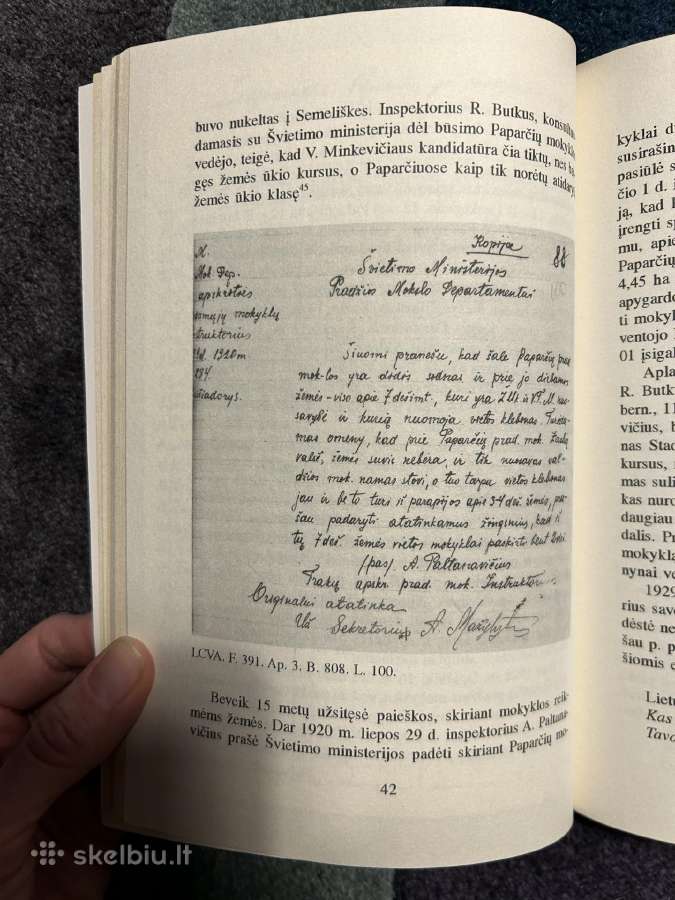 buvo nukeltas į Semeliškes. Inspektorius R. Butkus, konsultuo
damasis su Švietimo ministerija dėl būsimo Paparčių mokyklos
vedėjo, teigė, kad V. Minkevičiaus kandidatūra čia tiktų, nes bai
gęs žemės ūkio kursus, o Paparčiuose kaip tik norėtų atidaryti
žemės ūkio klasę⁴⁵.
Kopija
88
Mok. Dep.
apskrities
mokyklų
1920 m
184
Švietimo Ministerijos
Pradžios Mokslo Departamentui
Šiuomi pranešu, kad šale Paparčių prad.
mok-los yra didis sodnai ir prie jo dirbamos
žemės - viso apie 7 dešimt., kuri yra
savybė ir kurią nuomoja vietos klebonas. Turėda-
mas omeny, kad prie Paparčių prad. mok.
valst. žemės suvis nebėra, ir tik nuosavas val-
džios mok. namas stovi, o tuo tarpu vietos klebonas
jau ir be to turi iš parapijos apie 34 deš. žemės, pra-
šau padaryti atatinkamus žingsnius, kad iš
tų 7 deš. žemės vietos mokyklai paskirti bent
(pas) A. Paltanavičius
Trakų apskr. prad. mok. Instruktorius
Originalui atatinka
Už Sekretorių A.
LCVA. F. 391. Ap. 3. B. 808. L. 100.
Beveik 15 metų užsitęsė paieškos, skiriant mokyklos reik-
mėms žemės. Dar 1920 m. liepos 29 d. inspektorius A. Paltana-
vičius prašė Švietimo ministerijos padėti skiriant Paparčių mo-
42
kyklai
susirašin
pasiūlė
čio 1 d.
ją, kad
įrengti
mu, apie
Paparčių
4,45 ha
apygardo
ti mokyk
ventojo
01 įsigal
Apla
R. Butk
bern., 11
vičius,
nas Stad
kursus,
mas suli
kas nuro
daugiau
dalis. Pr
mokykla
nynai ve
1929
rius savo
dėstė ne
šau p. p
šiomis
Lietu
Kas
Tava
skelbiu.lt